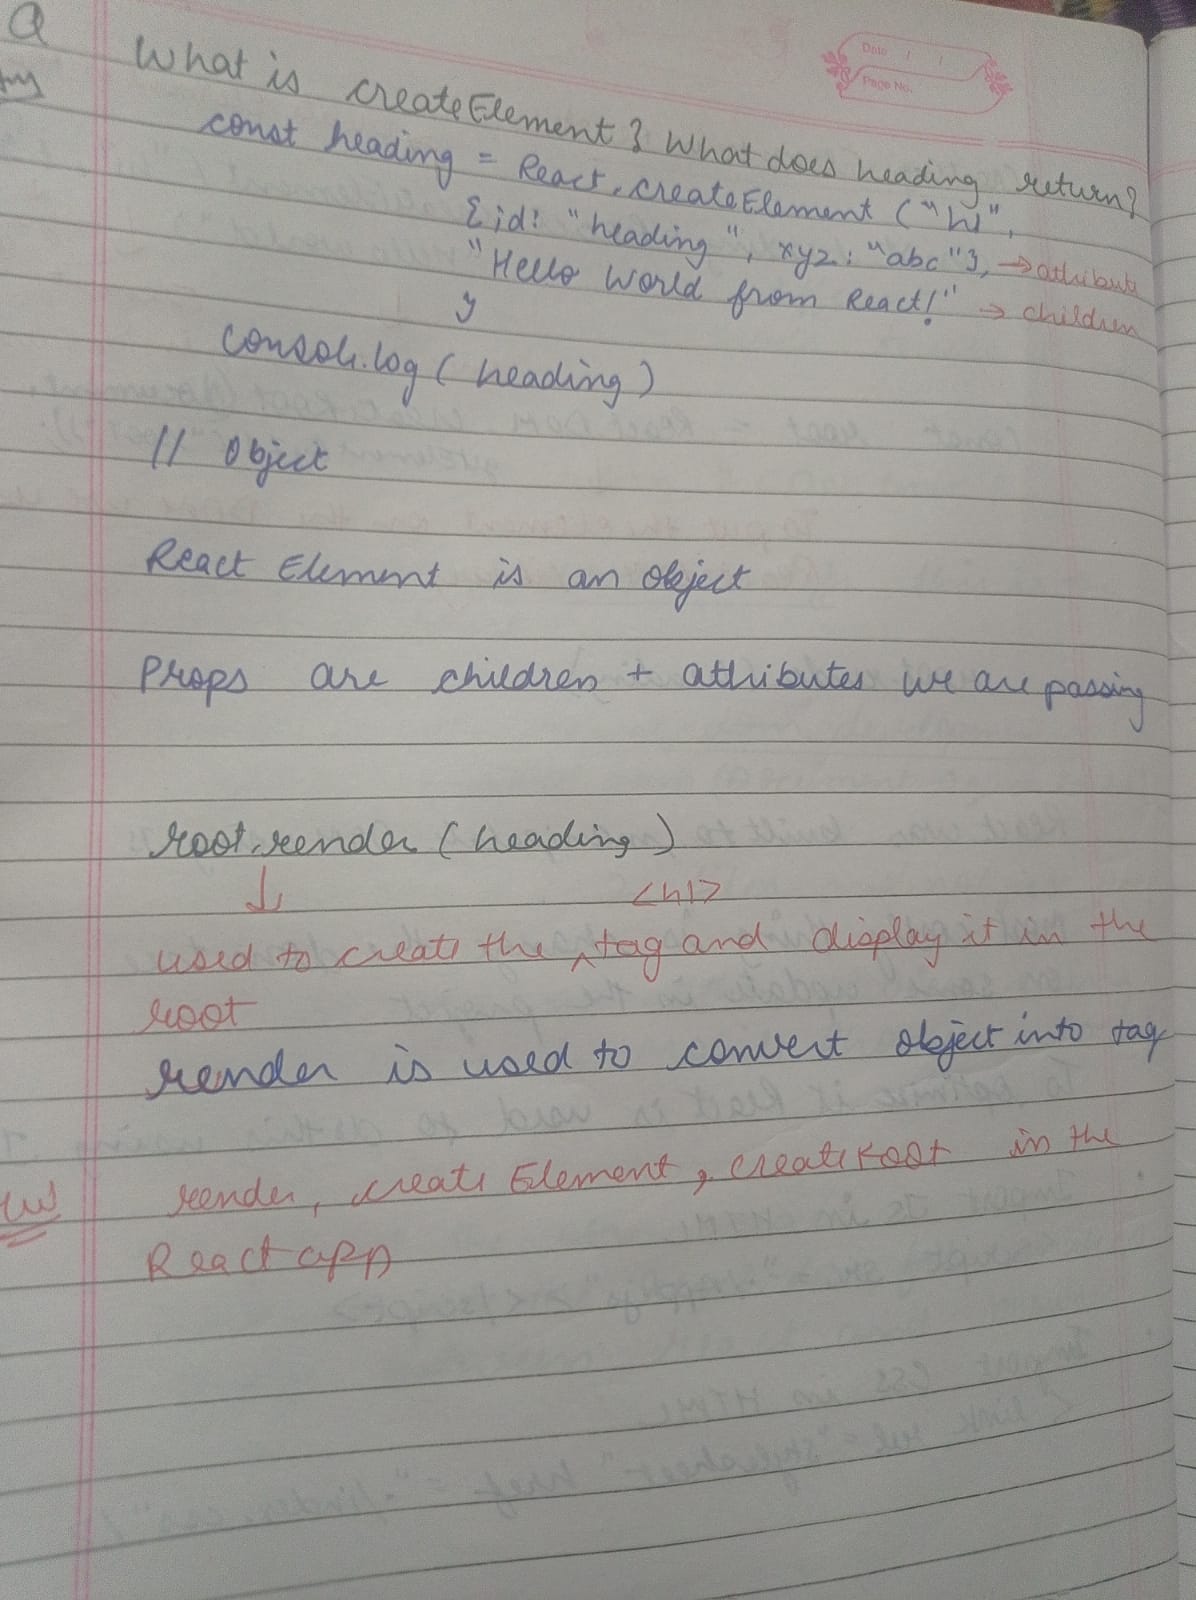 Q
Date / /
Page No.
What is createElement? What does heading return?
Ans
const heading = React.createElement ("h1",
{id: "heading", xyz: "abc"}, → attribute
"Hello World from React!" → children
)
console.log (heading)
// Object
React Element is an object
Props are children + attributes we are passing
root.render (heading)
↓
<h1>
used to create the ^ tag and display it in the
root
render is used to convert object into tag
render, createElement, createRoot in the
React app